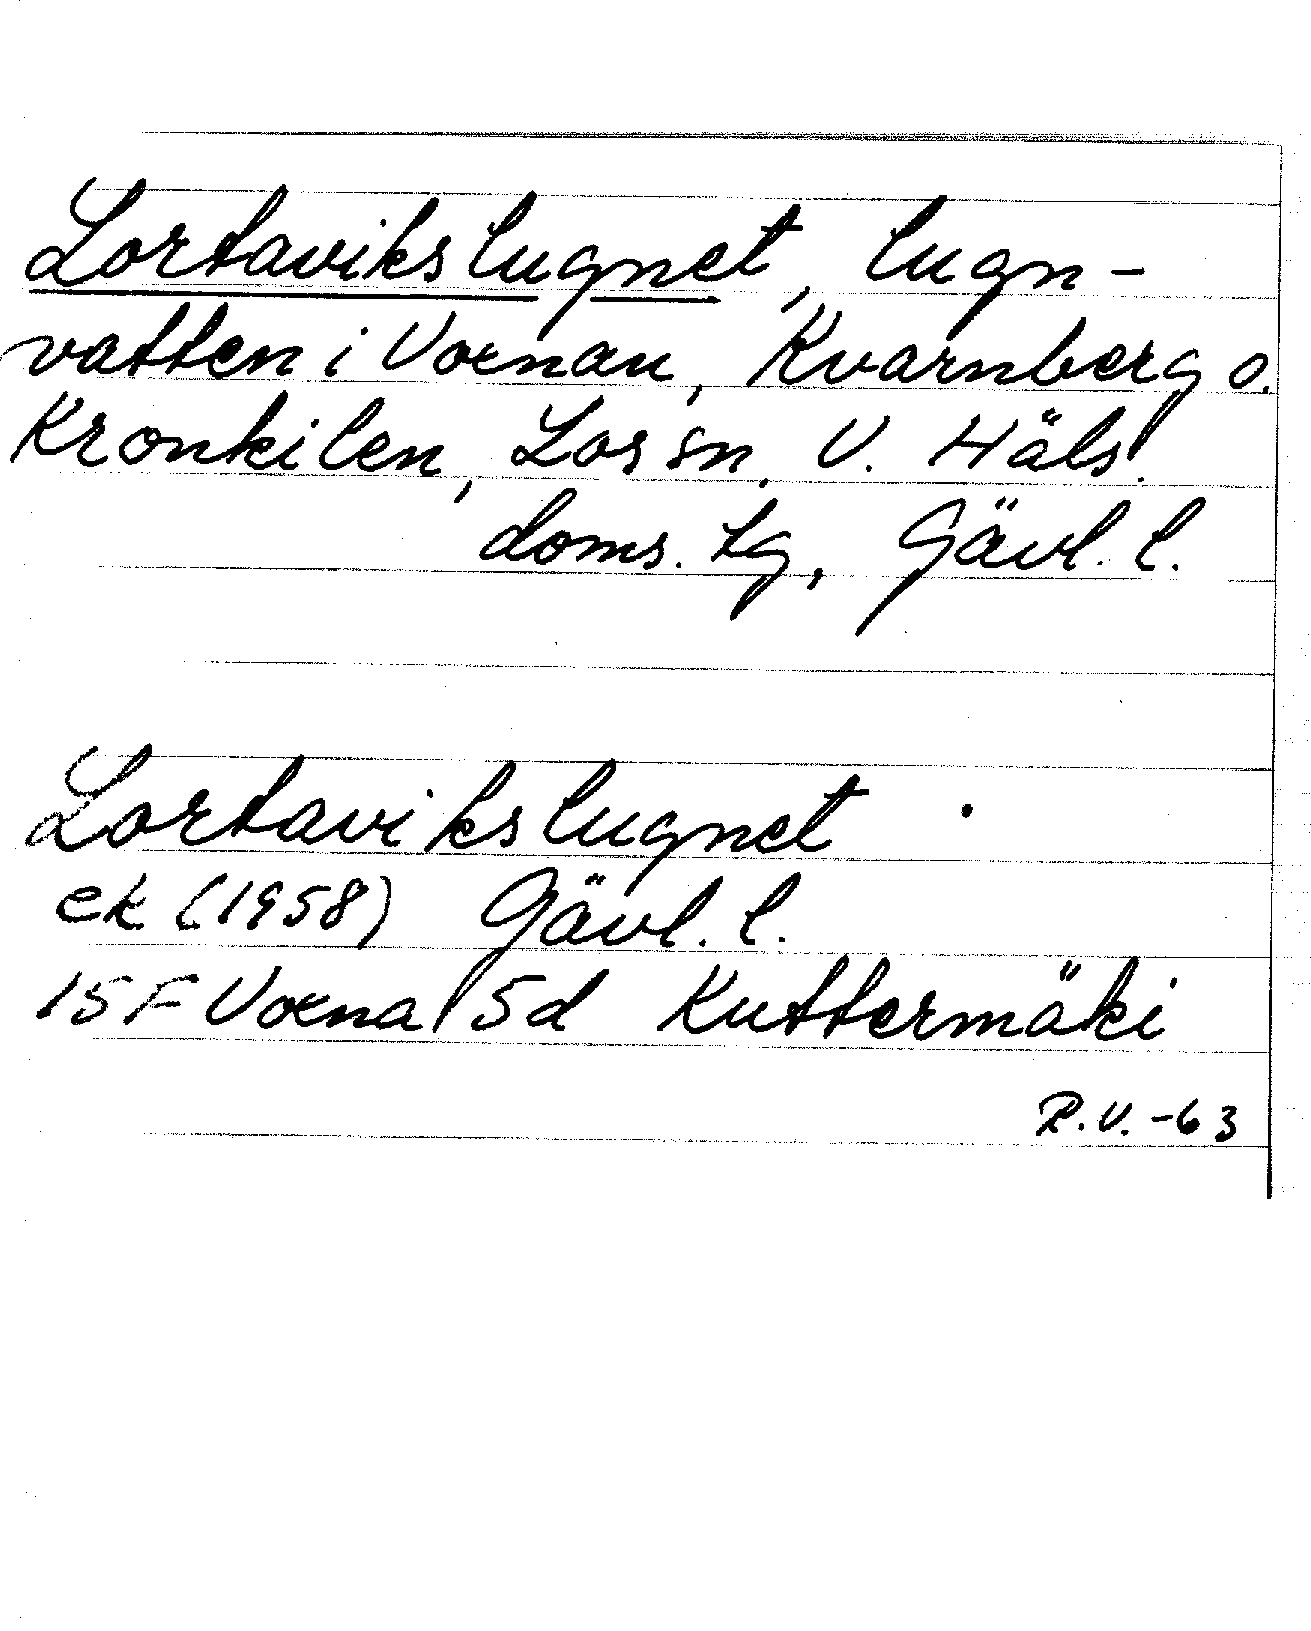 Lortavikslugnet, lugn-
vatten i Voxnan, Kvarnberg o.
Kronkilen, Los sn, V. Häls.
doms. tg, Gävl. l.
Lortavikslugnet
ek (1958) Gävl. l.
15F Voxna 5d Kuttermäki
R.V. -63